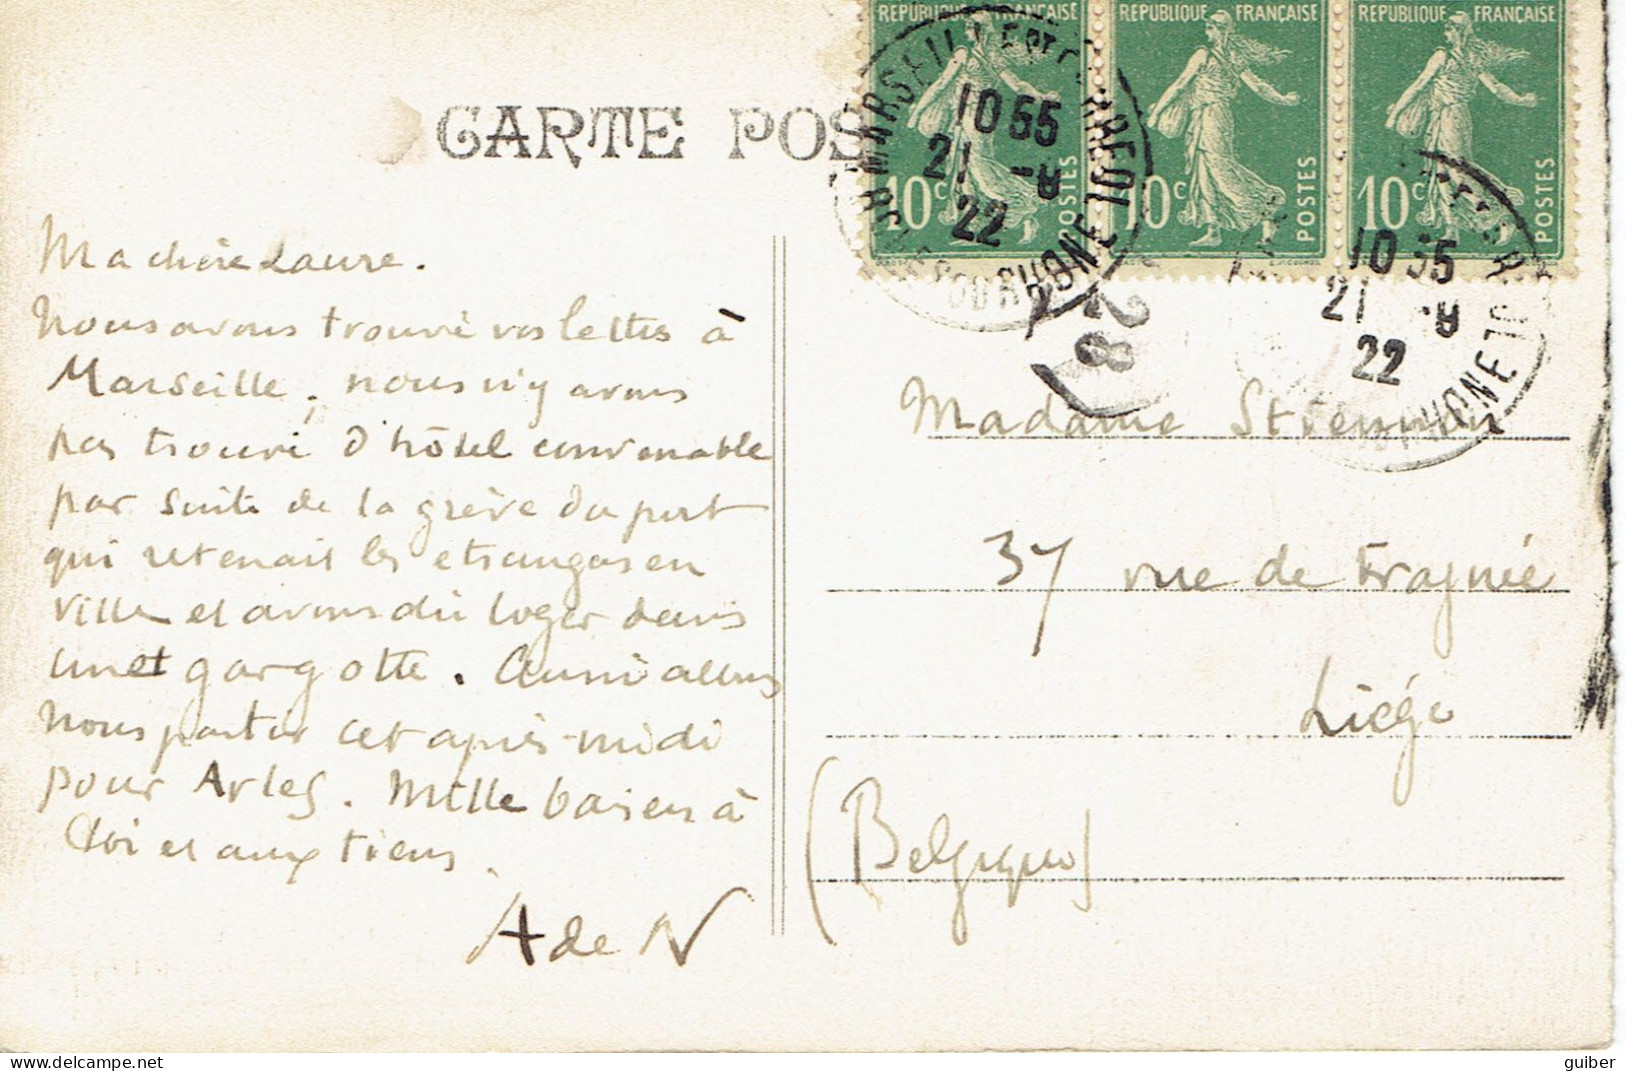 RÉPUBLIQUE FRANÇAISE RÉPUBLIQUE FRANÇAISE RÉPUBLIQUE FRANÇAISE
10c POSTES 10c POSTES 10c POSTES
MARSEILLE
10 55
21 -8
22
RHONE
10 55
21 -8
22
RHONE
28
CARTE POS
Ma chère Laure.
Nous avons trouvé vos lettres à
Marseille ; nous n'y avons
pas trouvé d'hôtel convenable
par suite de la grève du port
qui retenait les etrangers en
ville et avons dû loger dans
une gargotte. Aussi allons
nous partir cet après-midi
pour Arles. Mille baisers à
toi et aux tiens.
A de N
Madame
37 rue de Fragnée
Liége
(Belgique)
guiber